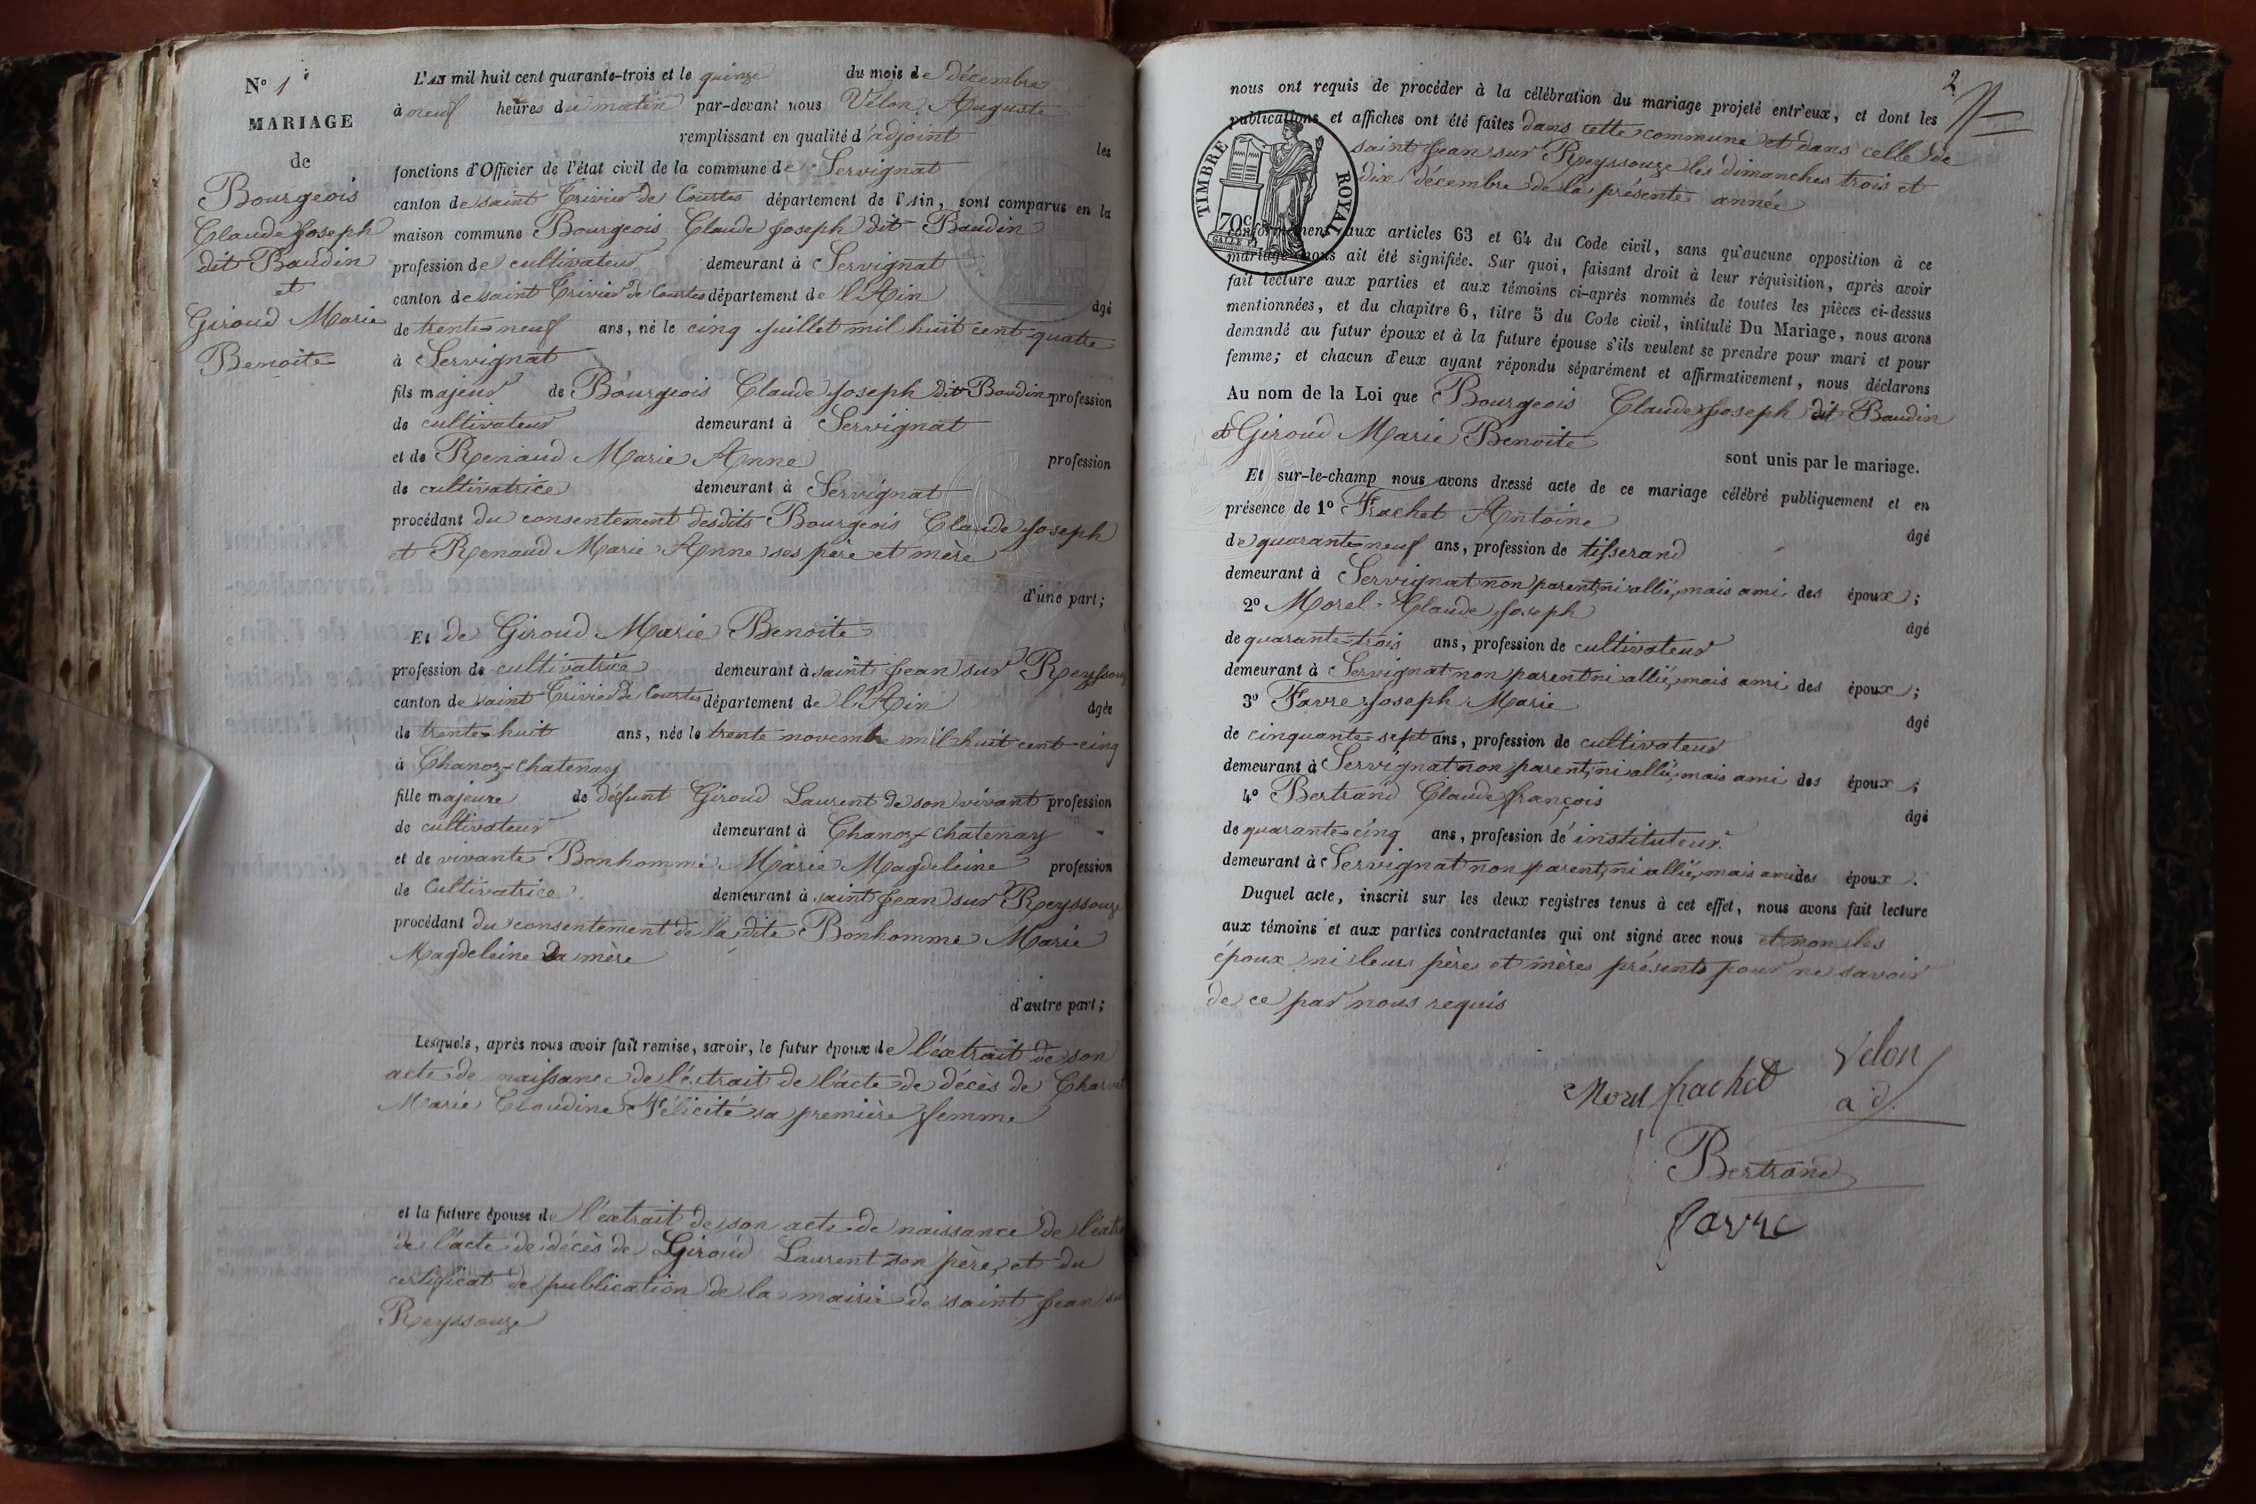 N° 1
MARIAGE
de
Bourgeois
Claude Joseph
dit Baudin
et
Giroud Marie
Benoite
L'AN mil huit cent quarante-trois et le quinze du mois de décembre
à neuf heures du matin par-devant nous Velon Auguste
remplissant en qualité d'adjoint les
fonctions d'Officier de l'état civil de la commune de Servignat
canton de saint Trivier de Courtes département de l'Ain, sont comparus en la
maison commune Bourgeois Claude Joseph dit Baudin
profession de cultivateur demeurant à Servignat
canton de saint Trivier de Courtes département de l'Ain âgé
de trente-neuf ans, né le cinq juillet mil huit cent quatre
à Servignat
fils majeur de Bourgeois Claude Joseph dit Baudin profession
de cultivateur demeurant à Servignat
et de Renaud Marie Anne profession
de cultivatrice demeurant à Servignat
procédant du consentement desdits Bourgeois Claude Joseph
et Renaud Marie Anne ses père et mère
d'une part;
Et de Giroud Marie Benoite
profession de cultivatrice demeurant à saint Jean sur Reyssouze
canton de saint Trivier de Courtes département de l'Ain âgée
de trente-huit ans, née le trente novembre mil huit cent cinq
à Chanoz-chatenay
fille majeure de défunt Giroud Laurent de son vivant profession
de cultivateur demeurant à Chanoz-chatenay
et de vivante Bonhomme Marie Magdeleine profession
de Cultivatrice demeurant à saint Jean sur Reyssouze
procédant du consentement de la dite Bonhomme Marie
Magdeleine sa mère
d'autre part;
Lesquels, après nous avoir fait remise, savoir, le futur époux de l'extrait de son
acte de naissance de l'extrait de l'acte de décès de
Marie Claudine Félicité sa première femme
et la future épouse de l'extrait de son acte de naissance de
de l'acte de décès de Giroud Laurent son père, et du
certificat de publication de la mairie de saint Jean sur
Reyssouze
2
nous ont requis de procéder à la célébration du mariage projeté entr'eux, et dont les
publications et affiches ont été faites dans cette commune et dans celle de
saint Jean sur Reyssouze les dimanches trois et
dix décembre de la présente année
TIMBRE ROYAL
70c
conformément aux articles 63 et 64 du Code civil, sans qu'aucune opposition à ce
mariage nous ait été signifiée. Sur quoi, faisant droit à leur réquisition, après avoir
fait lecture aux parties et aux témoins ci-après nommés de toutes les pièces ci-dessus
mentionnées, et du chapitre 6, titre 5 du Code civil, intitulé Du Mariage, nous avons
demandé au futur époux et à la future épouse s'ils veulent se prendre pour mari et pour
femme; et chacun d'eux ayant répondu séparément et affirmativement, nous déclarons
Au nom de la Loi que Bourgeois Claude Joseph dit Baudin
et Giroud Marie Benoite
sont unis par le mariage.
Et sur-le-champ nous avons dressé acte de ce mariage célébré publiquement et en
présence de 1° Frachet Antoine
âgé
de quarante-neuf ans, profession de tisserand
demeurant à Servignat non parent, ni allié, mais ami des époux;
2° Morel Claude Joseph
âgé
de quarante-trois ans, profession de cultivateur
demeurant à Servignat non parent ni allié, mais ami des époux;
3° Favre Joseph Marie
âgé
de cinquante-sept ans, profession de cultivateur
demeurant à Servignat non parent, ni allié, mais ami des époux;
4° Bertrand Claude françois
âgé
de quarante-cinq ans, profession de instituteur
demeurant à Servignat non parent, ni allié, mais ami des époux.
Duquel acte, inscrit sur les deux registres tenus à cet effet, nous avons fait lecture
aux témoins et aux parties contractantes qui ont signé avec nous et non les
époux ni leurs pères et mères présents pour ne savoir
de ce par nous requis
Morel frachet Velon
ad.
Bertrand
favre